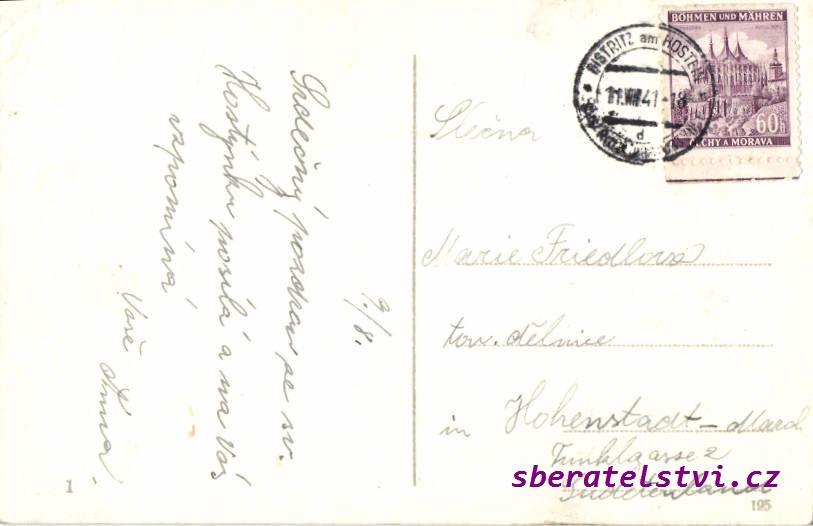 Srdečný pozdrav se sv.
Hostýnka posílá a na Vás
vzpomíná
Vaše Anna.
9./8.
1
BÖHMEN UND MÄHREN
60 h
ČECHY A MORAVA
BISTRITZ am HOSTEIN
11.VIII.41-18
d
Slečna
Marie Friedlova
tov. dělnice
in Hohenstadt - March
Funklgasse 2
Sudetenland
195
sberatelstvi.cz